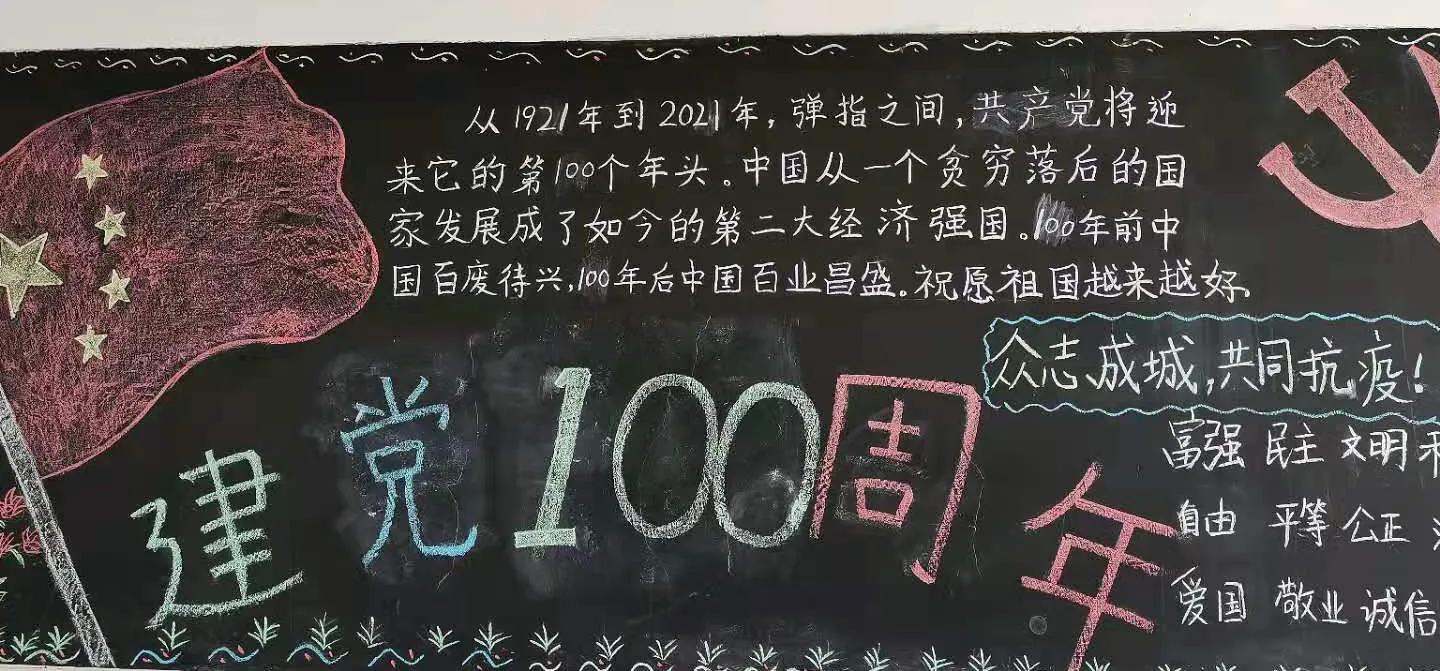 从1921年到2021年,弹指之间,共产党将迎
来它的第100个年头。中国从一个贪穷落后的国
家发展成了如今的第二大经济强国。100年前中
国百废待兴,100年后中国百业昌盛。祝愿祖国越来越好。
众志成城,共同抗疫!
建党100周年
富强 民主 文明
自由 平等 公正
爱国 敬业 诚信